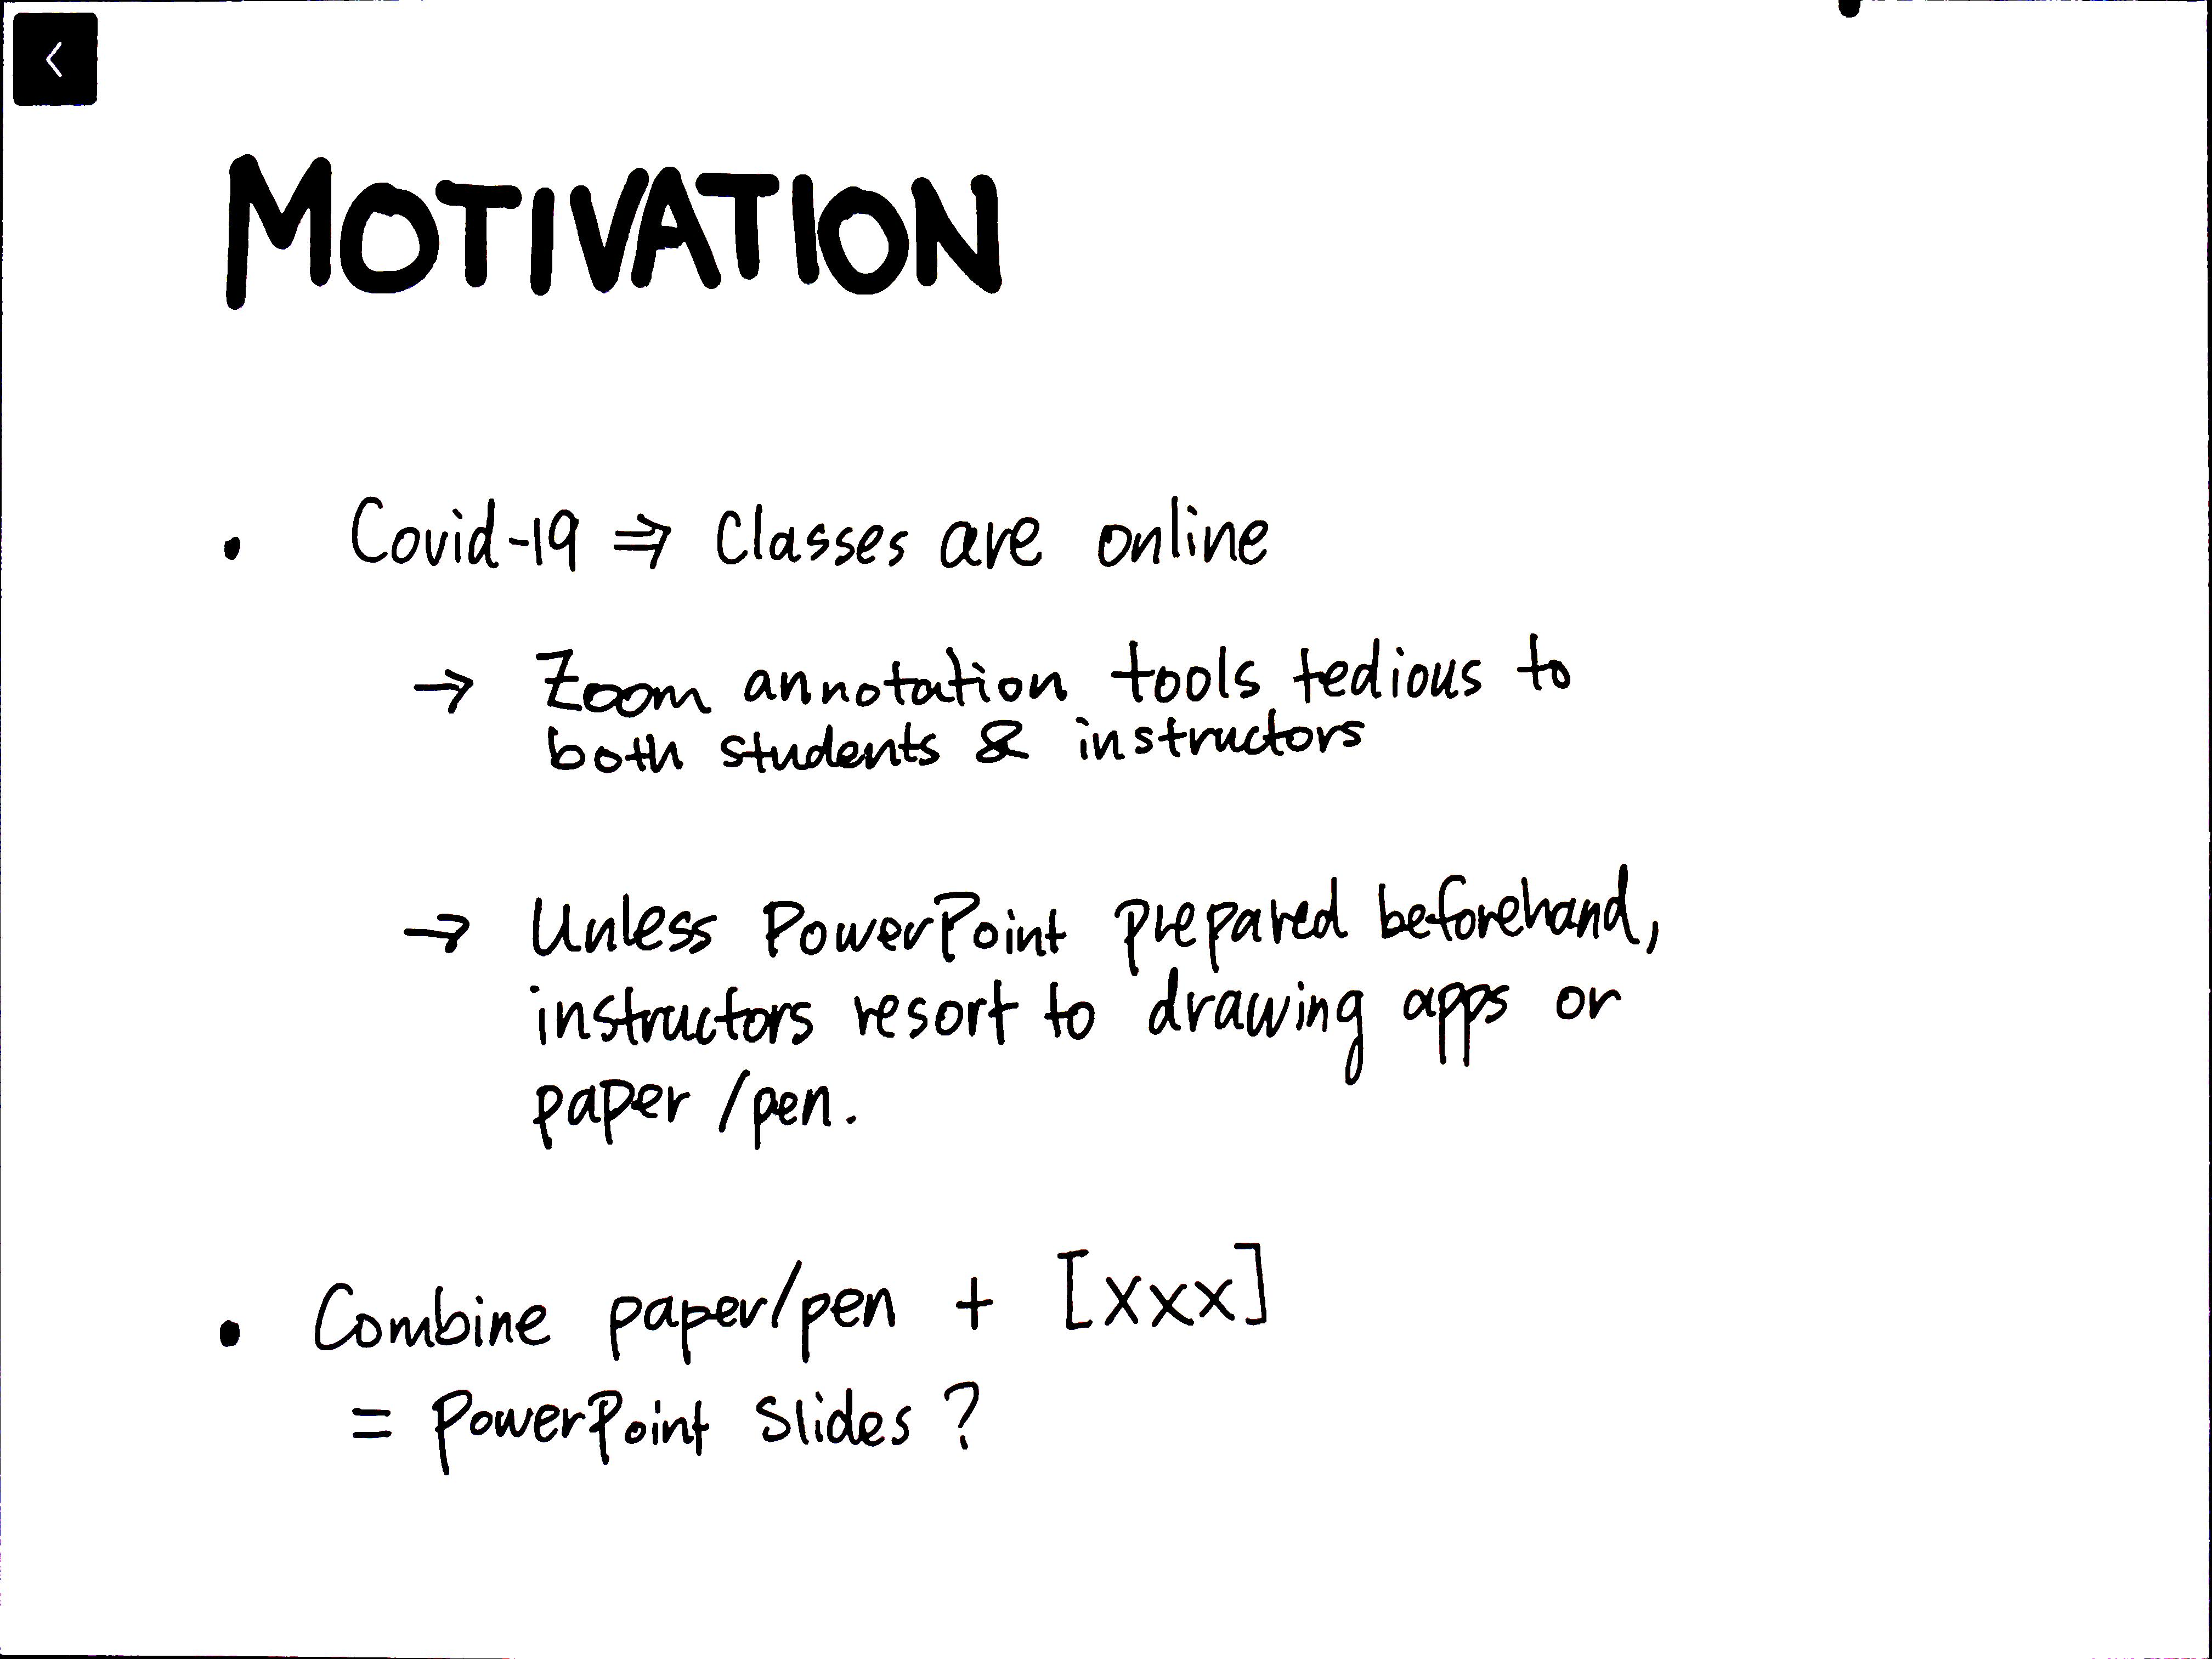 MOTIVATION
• Covid-19 ⇒ Classes are online
→ Zoom annotation tools tedious to
both students & instructors
→ Unless PowerPoint prepared beforehand,
instructors resort to drawing apps or
paper/pen.
• Combine paper/pen + [xxx]
= PowerPoint Slides?